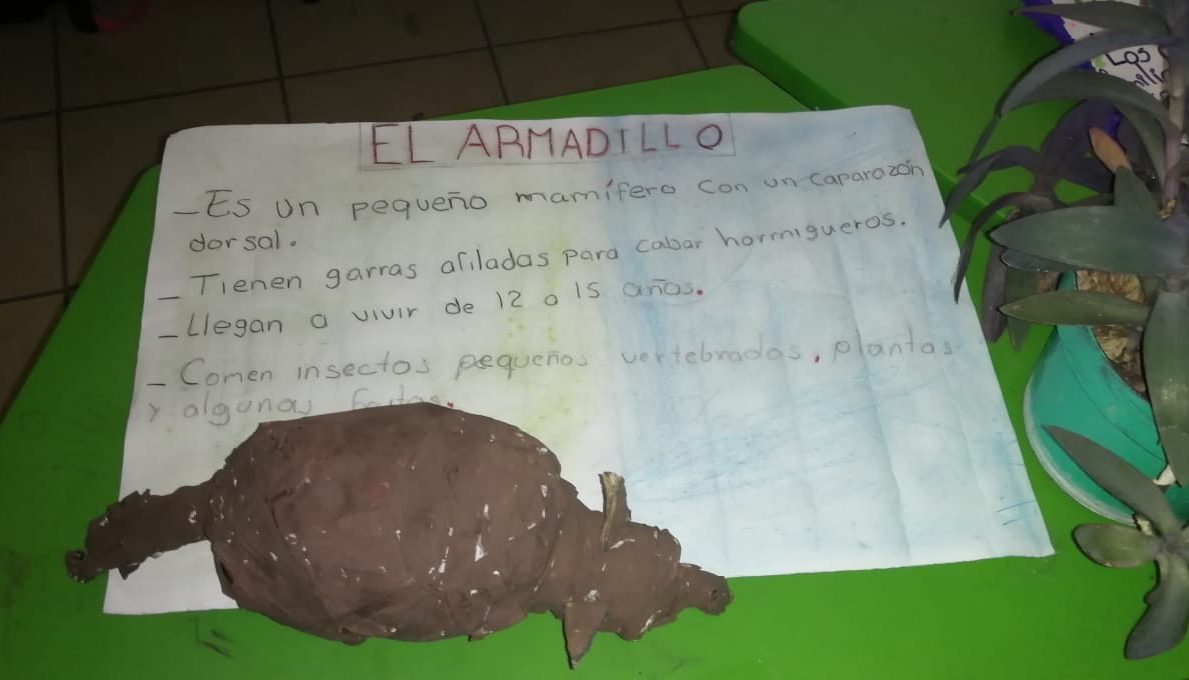 EL ARMADILLO
- Es un pequeño mamífero con un caparozón
dorsal.
- Tienen garras afiladas para cabar hormigueros.
- Llegan a vivir de 12 a 15 años.
- Comen insectos pequeños vertebrados, plantas
y algunas frutas.
Los